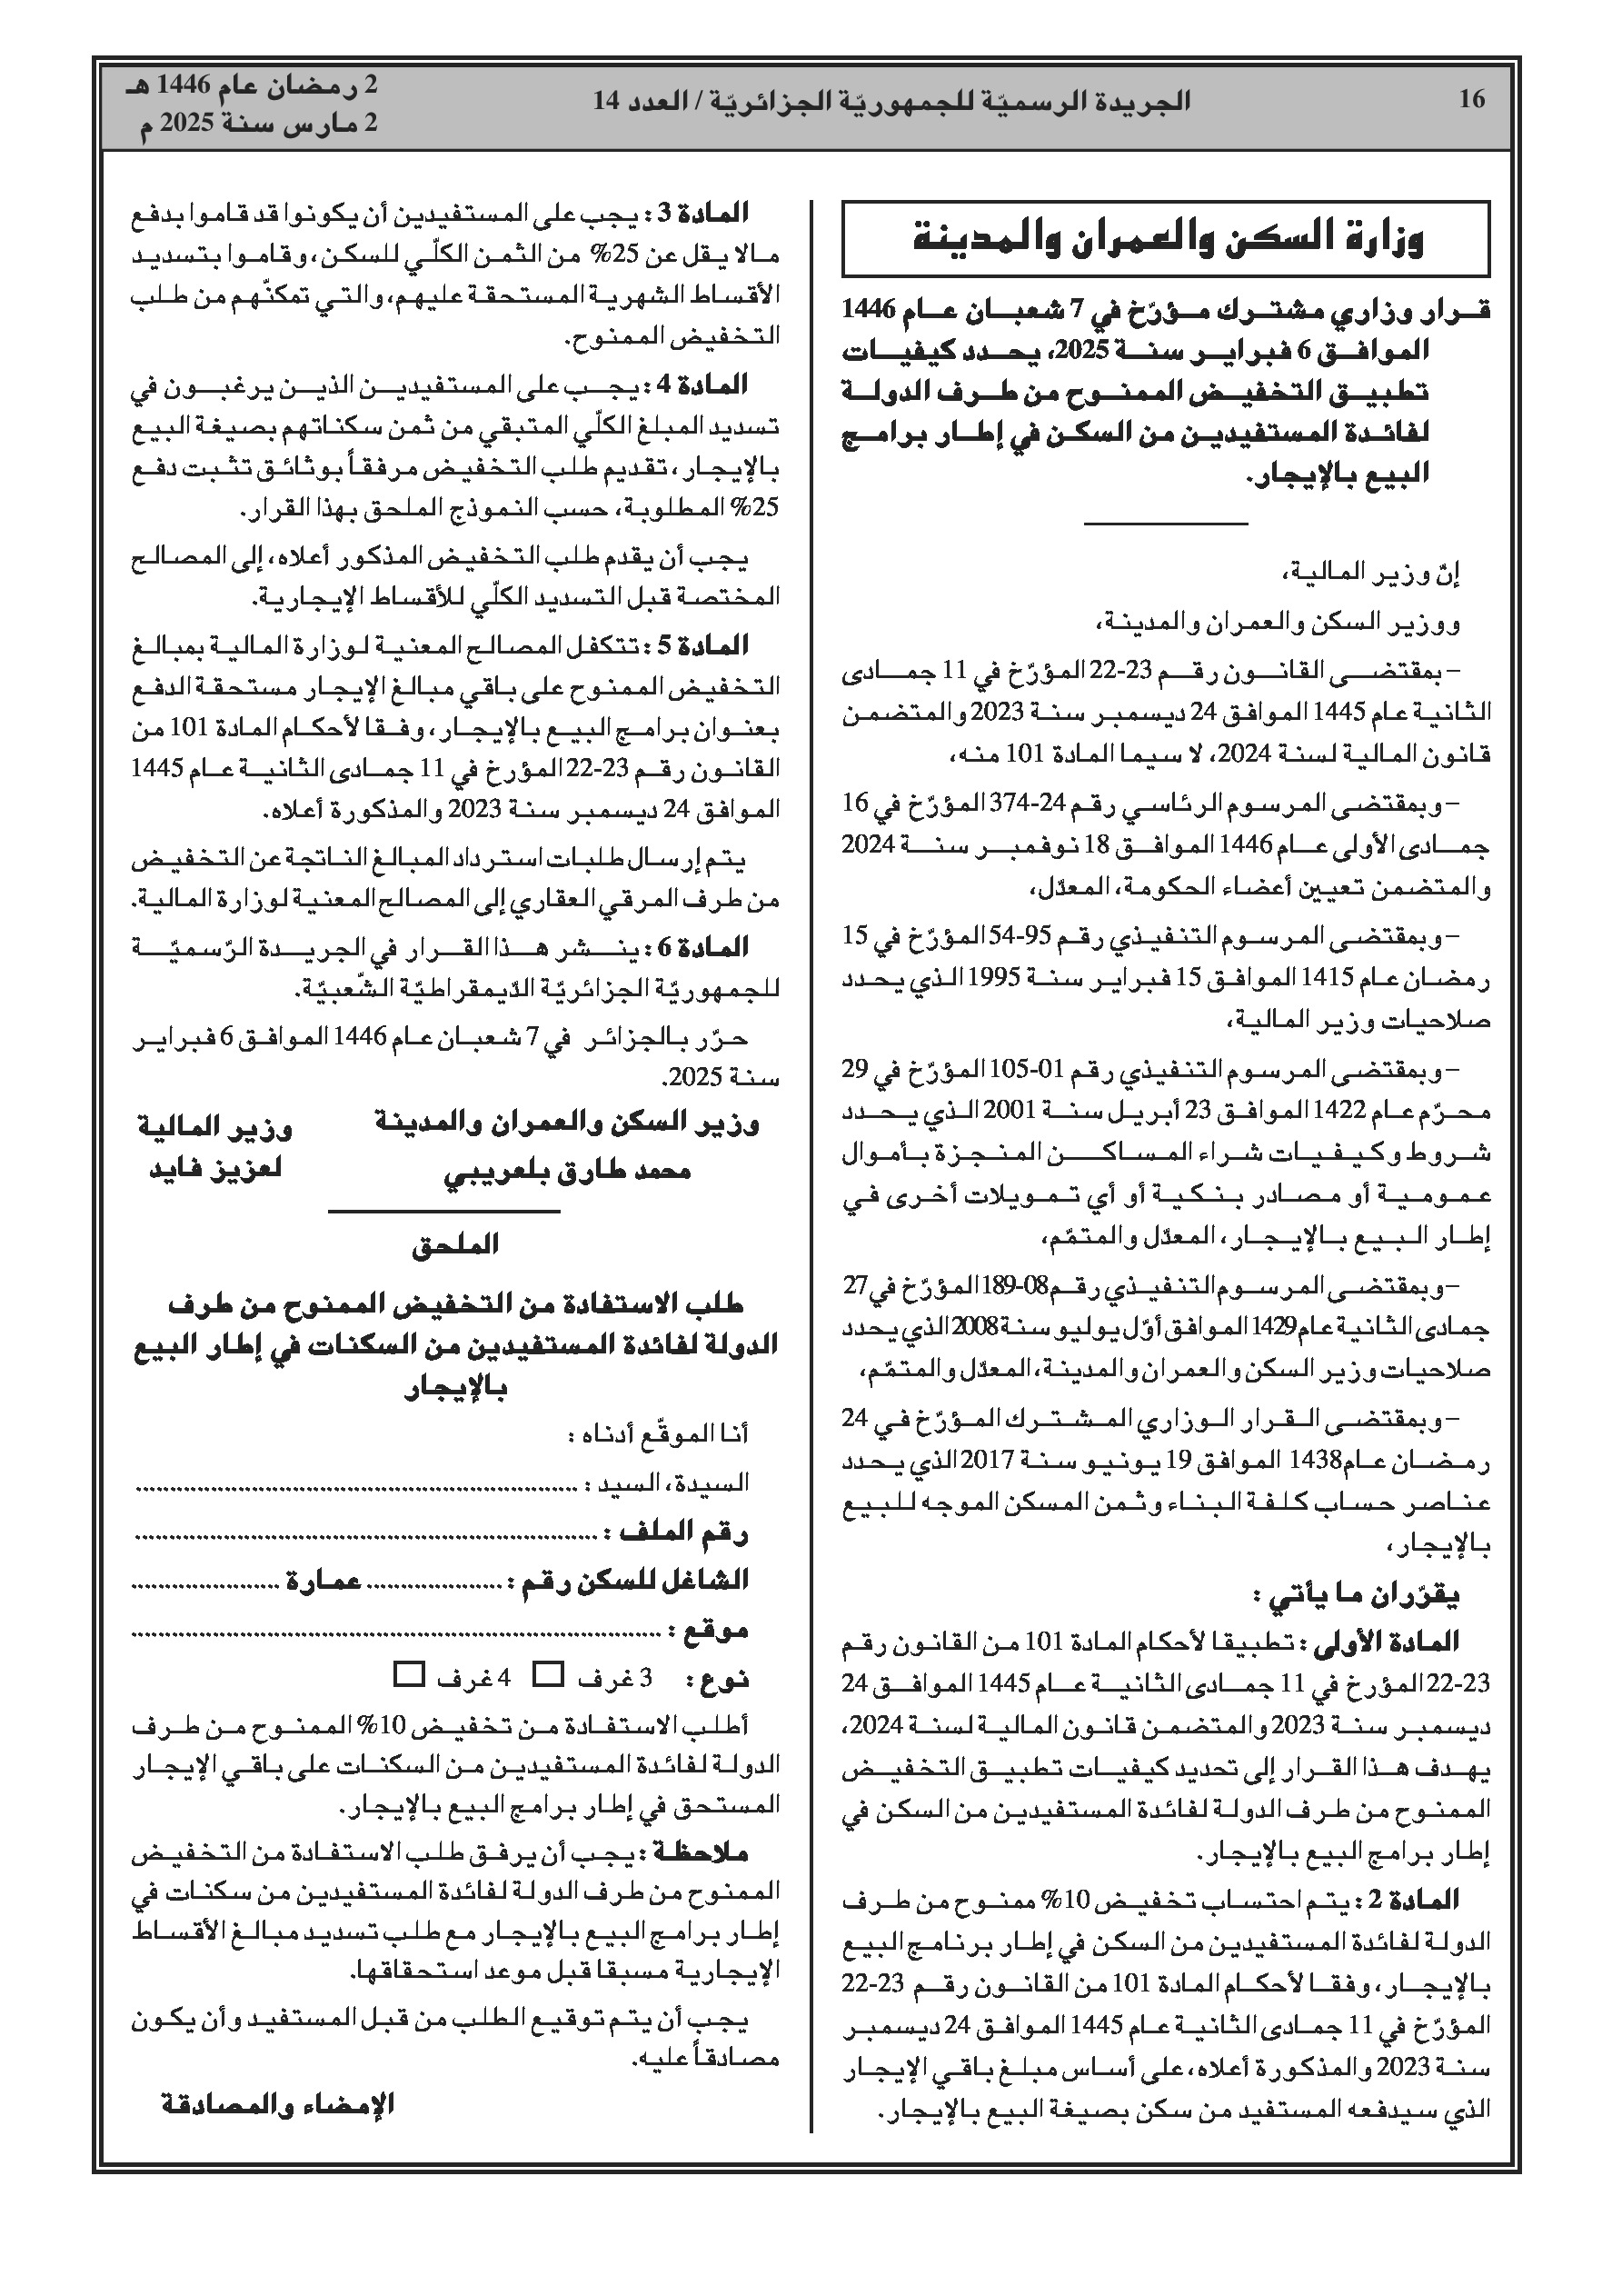 16
الجريدة الرسميّة للجمهوريّة الجزائريّة / العدد 14
2 رمضان عام 1446 هـ
2 مارس سنة 2025 م
وزارة السكن والعمران والمدينة
قرار وزاري مشترك مؤرّخ في 7 شعبان عام 1446
الموافق 6 فبراير سنة 2025، يحدد كيفيات
تطبيق التخفيض الممنوح من طرف الدولة
لفائدة المستفيدين من السكن في إطار برامج
البيع بالإيجار.
إنّ وزير المالية،
ووزير السكن والعمران والمدينة،
– بمقتضى القانون رقم 23-22 المؤرّخ في 11 جمادى
الثانية عام 1445 الموافق 24 ديسمبر سنة 2023 والمتضمن
قانون المالية لسنة 2024، لا سيما المادة 101 منه،
– وبمقتضى المرسوم الرئاسي رقم 24-374 المؤرّخ في 16
جمادى الأولى عام 1446 الموافق 18 نوفمبر سنة 2024
والمتضمن تعيين أعضاء الحكومة، المعدّل،
– وبمقتضى المرسوم التنفيذي رقم 95-54 المؤرّخ في 15
رمضان عام 1415 الموافق 15 فبراير سنة 1995 الذي يحدد
صلاحيات وزير المالية،
– وبمقتضى المرسوم التنفيذي رقم 01-105 المؤرّخ في 29
محرّم عام 1422 الموافق 23 أبريل سنة 2001 الذي يحدد
شروط وكيفيات شراء المساكن المنجزة بأموال
عمومية أو مصادر بنكية أو أي تمويلات أخرى في
إطار البيع بالإيجار، المعدّل والمتمّم،
– وبمقتضى المرسوم التنفيذي رقم 08-189 المؤرّخ في 27
جمادى الثانية عام 1429 الموافق أوّل يوليو سنة 2008 الذي يحدد
صلاحيات وزير السكن والعمران والمدينة، المعدّل والمتمّم،
– وبمقتضى القرار الوزاري المشترك المؤرّخ في 24
رمضان عام 1438 الموافق 19 يونيو سنة 2017 الذي يحدد
عناصر حساب كلفة البناء وثمن المسكن الموجه للبيع
بالإيجار،
يقرّران ما يأتي :
المادة الأولى : تطبيقا لأحكام المادة 101 من القانون رقم
23-22 المؤرخ في 11 جمادى الثانية عام 1445 الموافق 24
ديسمبر سنة 2023 والمتضمن قانون المالية لسنة 2024،
يهدف هذا القرار إلى تحديد كيفيات تطبيق التخفيض
الممنوح من طرف الدولة لفائدة المستفيدين من السكن في
إطار برامج البيع بالإيجار.
المادة 2 : يتم احتساب تخفيض 10% ممنوح من طرف
الدولة لفائدة المستفيدين من السكن في إطار برنامج البيع
بالإيجار، وفقا لأحكام المادة 101 من القانون رقم 23-22
المؤرّخ في 11 جمادى الثانية عام 1445 الموافق 24 ديسمبر
سنة 2023 والمذكورة أعلاه، على أساس مبلغ باقي الإيجار
الذي سيدفعه المستفيد من سكن بصيغة البيع بالإيجار.
المادة 3 : يجب على المستفيدين أن يكونوا قد قاموا بدفع
مالا يقل عن 25% من الثمن الكلّي للسكن، وقاموا بتسديد
الأقساط الشهرية المستحقة عليهم، والتي تمكنّهم من طلب
التخفيض الممنوح.
المادة 4 : يجب على المستفيدين الذين يرغبون في
تسديد المبلغ الكلّي المتبقي من ثمن سكناتهم بصيغة البيع
بالإيجار، تقديم طلب التخفيض مرفقاً بوثائق تثبت دفع
25% المطلوبة، حسب النموذج الملحق بهذا القرار.
يجب أن يقدم طلب التخفيض المذكور أعلاه، إلى المصالح
المختصة قبل التسديد الكلّي للأقساط الإيجارية.
المادة 5 : تتكفل المصالح المعنية لوزارة المالية بمبالغ
التخفيض الممنوح على باقي مبالغ الإيجار مستحقة الدفع
بعنوان برامج البيع بالإيجار، وفقا لأحكام المادة 101 من
القانون رقم 23-22 المؤرخ في 11 جمادى الثانية عام 1445
الموافق 24 ديسمبر سنة 2023 والمذكورة أعلاه.
يتم إرسال طلبات استرداد المبالغ الناتجة عن التخفيض
من طرف المرقي العقاري إلى المصالح المعنية لوزارة المالية.
المادة 6 : ينشر هذا القرار في الجريدة الرّسميّة
للجمهوريّة الجزائريّة الدّيمقراطيّة الشّعبيّة.
حرّر بالجزائر في 7 شعبان عام 1446 الموافق 6 فبراير
سنة 2025.
وزير السكن والعمران والمدينة
محمد طارق بلعريبي
وزير المالية
لعزيز فايد
الملحق
طلب الاستفادة من التخفيض الممنوح من طرف
الدولة لفائدة المستفيدين من السكنات في إطار البيع
بالإيجار
أنا الموقّع أدناه :
السيدة، السيد : ................................................................
رقم الملف : ...................................................................
الشاغل للسكن رقم : .................... عمارة ......................
موقع : .............................................................................
نوع : 3 غرف □ 4 غرف □
أطلب الاستفادة من تخفيض 10% الممنوح من طرف
الدولة لفائدة المستفيدين من السكنات على باقي الإيجار
المستحق في إطار برامج البيع بالإيجار.
ملاحظة : يجب أن يرفق طلب الاستفادة من التخفيض
الممنوح من طرف الدولة لفائدة المستفيدين من سكنات في
إطار برامج البيع بالإيجار مع طلب تسديد مبالغ الأقساط
الإيجارية مسبقا قبل موعد استحقاقها.
يجب أن يتم توقيع الطلب من قبل المستفيد وأن يكون
مصادقاً عليه.
الإمضاء والمصادقة